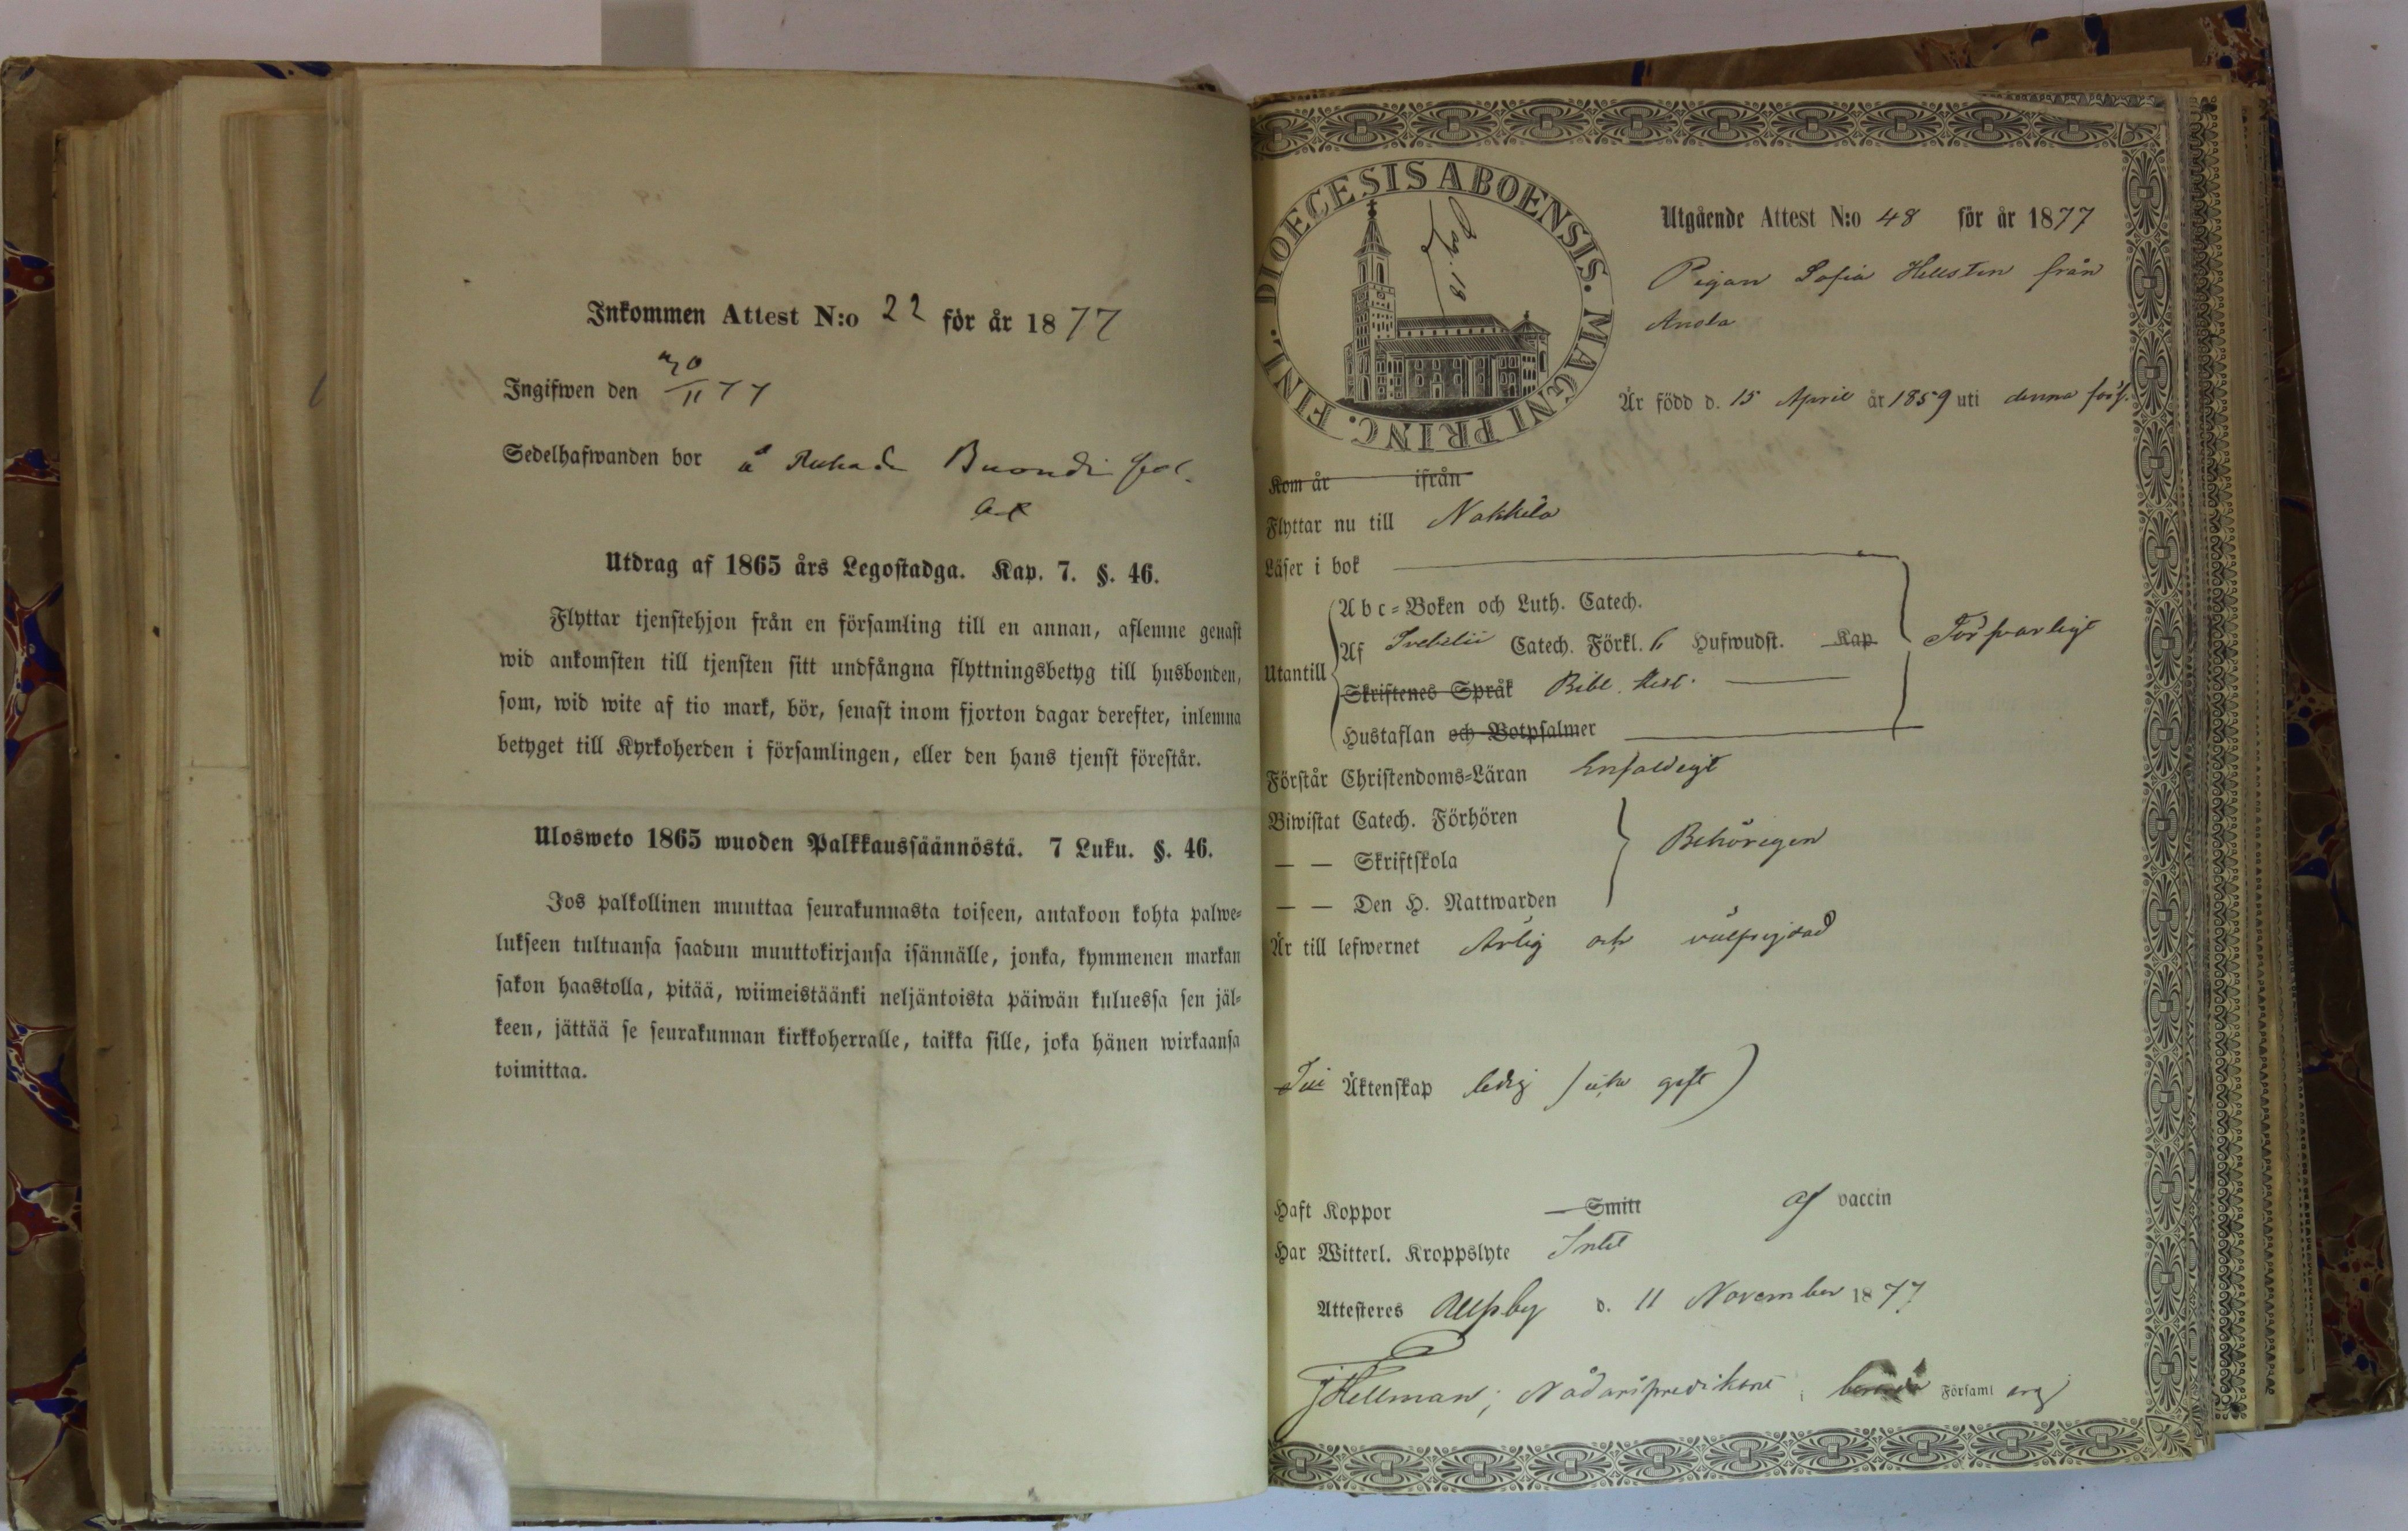 Inkommen Attest N:o 22 för år 1877
Ingifwen den 30/11 77
Sedelhafwanden bor å
Utdrag af 1865 års Legostadga. Kap. 7. §. 46.
Flyttar tjenstehjon från en församling till en annan, aflemne genast
wid ankomsten till tjensten sitt undfångna flyttningsbetyg till husbonden,
som, wid wite af tio mark, bör, senast inom fjorton dagar derefter, inlemna
betyget till Kyrkoherden i församlingen, eller den hans tjenst förestår.
Ulosweto 1865 wuoden Palkkaussäännöstä. 7 Luku. §. 46.
Jos palkollinen muuttaa seurakunnasta toiseen, antakoon kohta palwe=
lukseen tultuansa saadun muuttokirjansa isännälle, jonka, kymmenen markan
sakon haastolla, pitää, wiimeistäänki neljäntoista päiwän kuluessa sen jäl=
keen, jättää se seurakunnan kirkkoherralle, taikka sille, joka hänen wirkaansa
toimittaa.
DIOECESIS ABOENSIS. MAGNI PRINC. FINL.
Utgående Attest N:o 48 för år 1877
Pigan Sofia Hellsten från
Anola
Är född d. 15 April år 1859 uti denna förs.
Kom år ifrån
Flyttar nu till Nakkila
Läser i bok
Utantill
Abc=Boken och Luth. Catech.
Af Svebelii Catech. Förkl. 6 Hufwudst. Kap
Skriftenes Språk Bibl. Hist.
Hustaflan och Botpsalmer
Försvarligt
Förstår Christendoms=Läran Enfaldigt
Biwistat Catech. Förhören
— — Skriftskola
— — Den H. Nattwarden
Behörigen
Är till lefwernet Ärlig och välfrejdad
Till Äktenskap ledig (icke gift)
Haft Koppor — Smitt af vaccin
Har Witterl. Kroppslyte Intet
Attesteres Ulfsby d. 11 November 1877
JHellman, Nådårspredikant i Församl